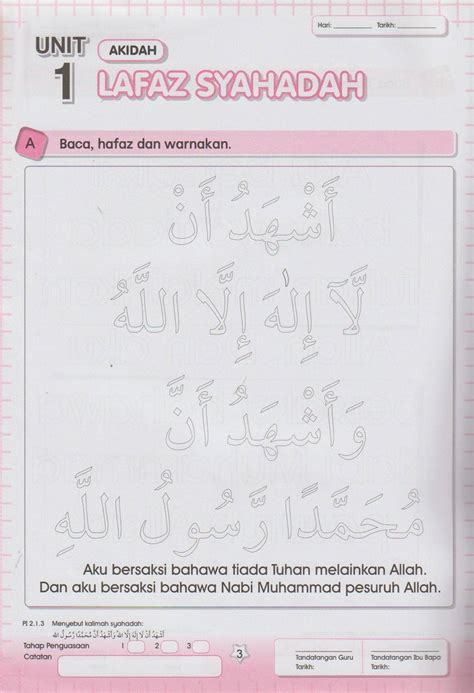 Hari: Tarikh:
UNIT 1
AKIDAH
LAFAZ SYAHADAH
A Baca, hafaz dan warnakan.
أَشْهَدُ أَنْ
لَّآ إِلٰهَ إِلَّا اللَّهُ
وَأَشْهَدُ أَنَّ
مُحَمَّدًا رَّسُولُ اللَّهِ
Aku bersaksi bahawa tiada Tuhan melainkan Allah.
Dan aku bersaksi bahawa Nabi Muhammad pesuruh Allah.
PI 2.1.3 Menyebut kalimah syahadah:
أَشْهَدُ أَنْ لَا إِلَهَ إِلَّا اللهُ وَأَشْهَدُ أَنَّ مُحَمَّدًا رَسُولُ الله
Tahap Penguasaan 1 2 3
Catatan
3
Tandatangan Guru
Tarikh:
Tandatangan Ibu Bapa
Tarikh: